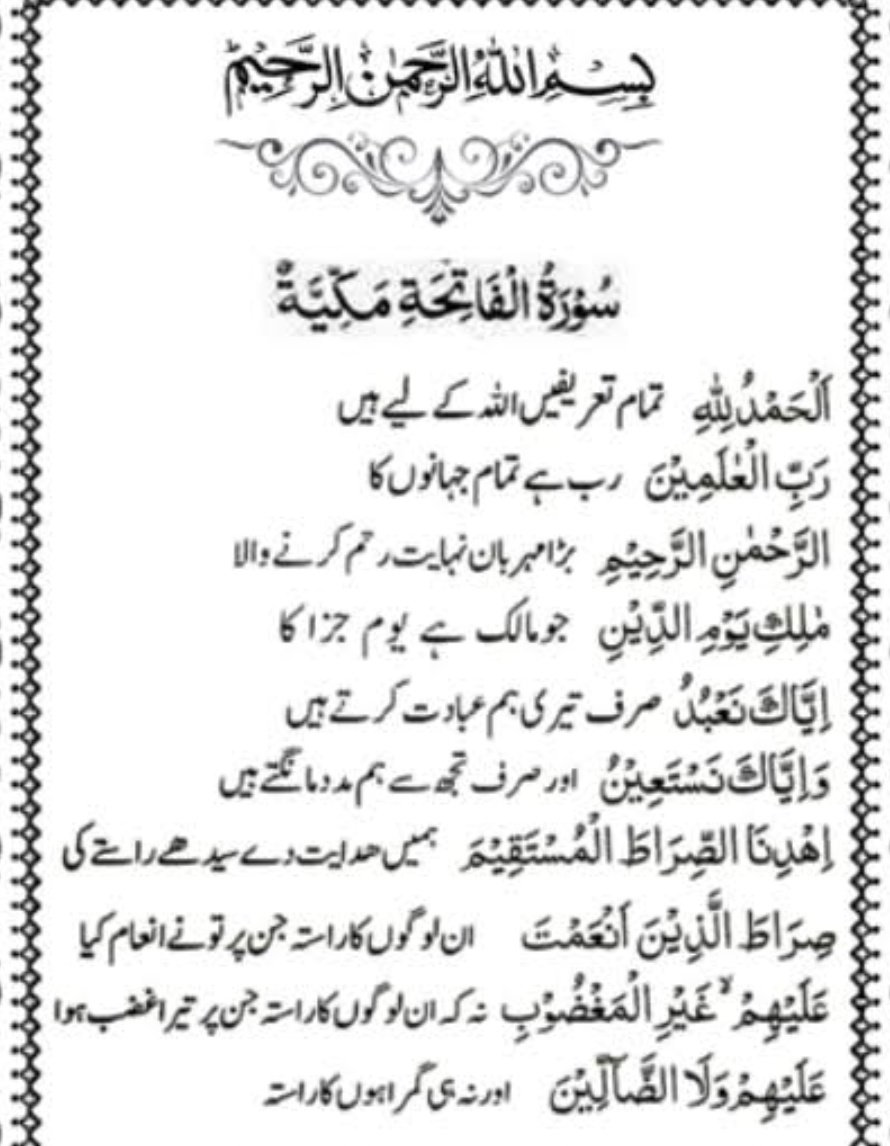 بِسْمِ اللهِ الرَّحْمٰنِ الرَّحِيْمِ
سُوْرَةُ الْفَاتِحَةِ مَكِّيَّةٌ
اَلْحَمْدُ لِلّٰهِ تمام تعریفیں اللہ کے لیے ہیں
رَبِّ الْعٰلَمِيْنَ رب ہے تمام جہانوں کا
الرَّحْمٰنِ الرَّحِيْمِ بڑا مہربان نہایت رحم کرنے والا
مٰلِكِ يَوْمِ الدِّيْنِ جو مالک ہے یوم جزا کا
اِيَّاكَ نَعْبُدُ صرف تیری ہم عبادت کرتے ہیں
وَاِيَّاكَ نَسْتَعِيْنُ اور صرف تجھ سے ہم مدد مانگتے ہیں
اِهْدِنَا الصِّرَاطَ الْمُسْتَقِيْمَ ہمیں ھدایت دے سیدھے راستے کی
صِرَاطَ الَّذِيْنَ اَنْعَمْتَ ان لوگوں کا راستہ جن پر تو نے انعام کیا
عَلَيْهِمْ ۙ غَيْرِ الْمَغْضُوْبِ نہ کہ ان لوگوں کا راستہ جن پر تیرا غضب ہوا
عَلَيْهِمْ وَلَا الضَّآلِّيْنَ اور نہ ہی گمراہوں کا راستہ